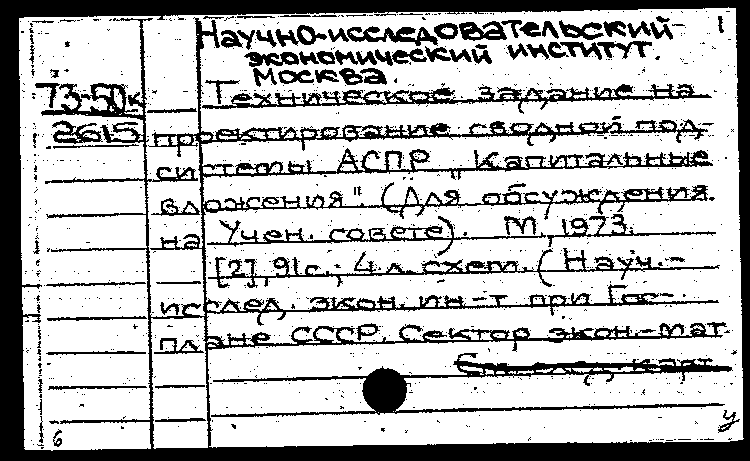 Научно-исследовательский 1
экономический институт.
Москва.
73-50к Техническое задание на
2615 проектирование сводной под-
системы АСПР „Капитальные
вложения". (Для обсуждения
на Учен. совете). М., 1973.
[2], 91 с.; 4 л. схем. (Науч.-
исслед. экон. ин-т при Гос-
плане СССР. Сектор экон.-мат
См. след. карт.
6 у